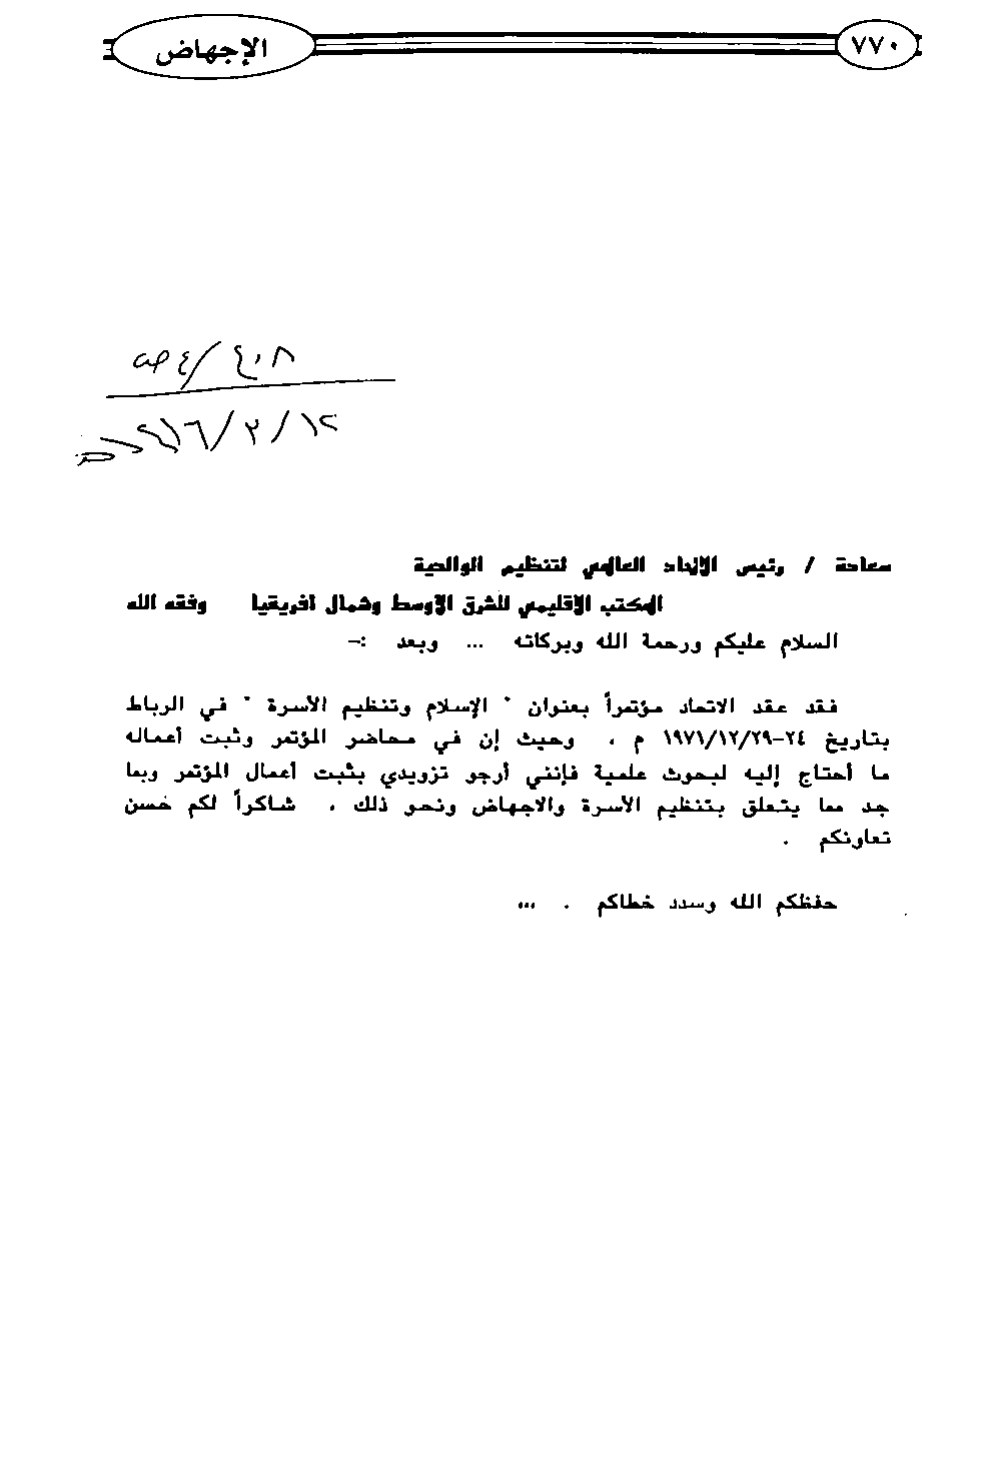 ٧٧٠
الإجهاض
٤٠٨/٤
١٢/٢/١٤١٦
سعادة / رئيس الإتحاد العالمي لتنظيم الوالدية
المكتب الإقليمي للشرق الأوسط وشمال أفريقيا وفقه الله
السلام عليكم ورحمة الله وبركاته ... وبعد :-
فقد عقد الاتحاد مؤتمراً بعنوان " الإسلام وتنظيم الأسرة " في الرباط
بتاريخ ٢٤-١٩٧١/١٢/٢٩ م ، وحيث إن في محاضر المؤتمر وثبت أعماله
ما أحتاج إليه لبحوث علمية فإنني أرجو تزويدي بثبت أعمال المؤتمر وبما
جد مما يتعلق بتنظيم الأسرة والاجهاض ونحو ذلك ، شاكراً لكم حسن
تعاونكم .
حفظكم الله وسدد خطاكم . ...